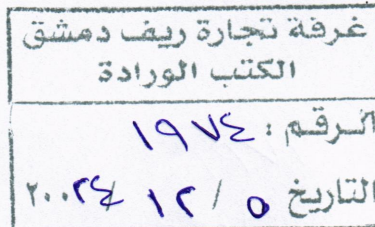 غرفة تجارة ريف دمشق
الكتب الورادة
الرقم : ١٩٧٤
التاريخ ٥ / ١٢ / ٢٠٠٢٤